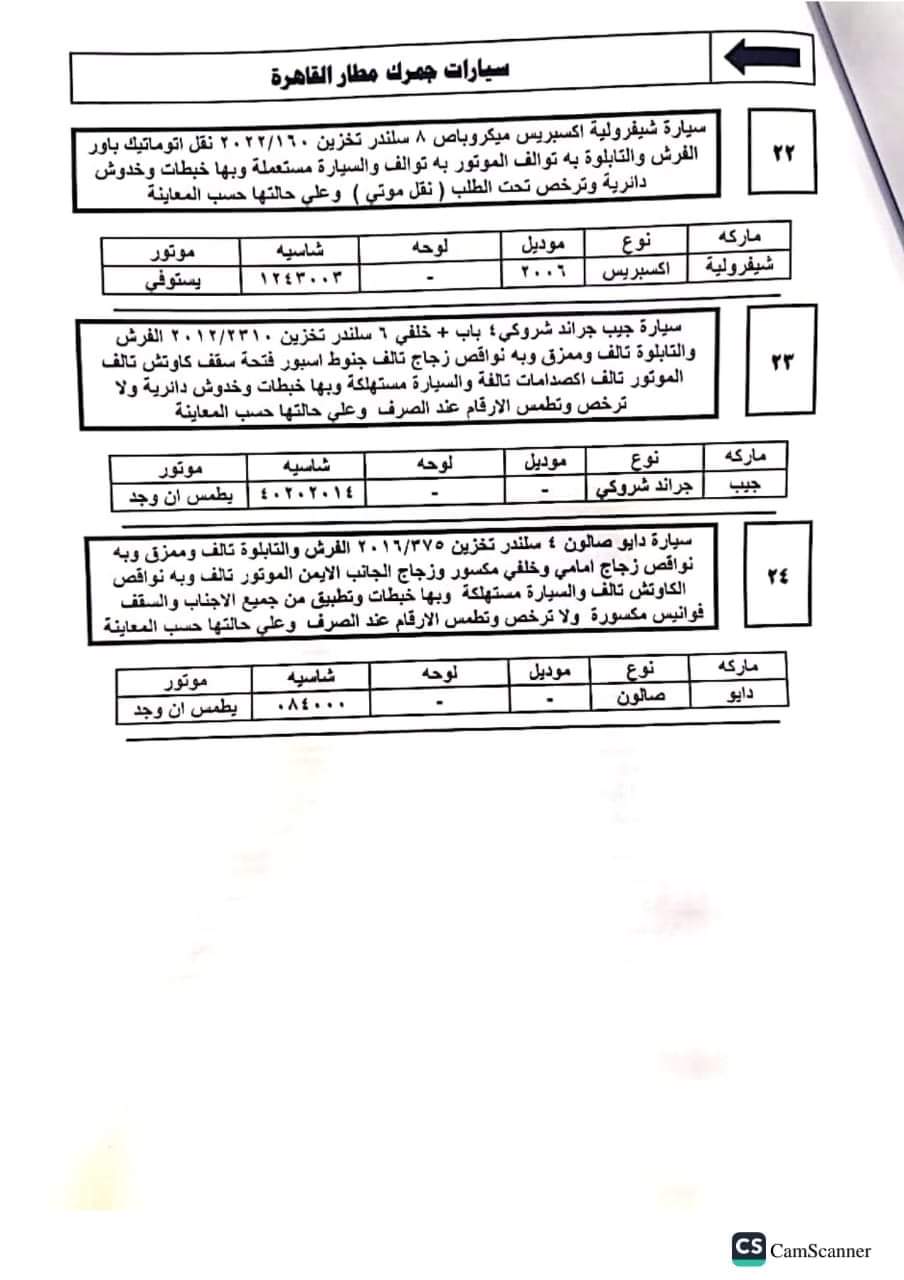 سيارات جمرك مطار القاهرة
٢٢
سيارة شيفرولية اكسبريس ميكروباص ٨ سلندر تخزين ٢٠٢٢/١٦٠ نقل اتوماتيك باور
الفرش والتابلوة به توالف الموتور به توالف والسيارة مستعملة وبها خبطات وخدوش
دائرية وترخص تحت الطلب ( نقل موتي ) وعلي حالتها حسب المعاينة
ماركه نوع موديل لوحه شاسيه موتور
شيفرولية اكسبريس ٢٠٠٦ - ١٢٤٣٠٠٣ يستوفي
٢٣
سيارة جيب جراند شروكي٤ باب + خلفي ٦ سلندر تخزين ٢٠١٢/٢٣١٠ الفرش
والتابلوة تالف وممزق وبه نواقص زجاج تالف جنوط اسبور فتحة سقف كاوتش تالف
الموتور تالف اكصدامات تالفة والسيارة مستهلكة وبها خبطات وخدوش دائرية ولا
ترخص وتطمس الارقام عند الصرف وعلي حالتها حسب المعاينة
ماركه نوع موديل لوحه شاسيه موتور
جيب جراند شروكي - - ٤٠٢٠٢٠١٤ يطمس ان وجد
٢٤
سيارة دايو صالون ٤ سلندر تخزين ٢٠١٦/٣٧٥ الفرش والتابلوة تالف وممزق وبه
نواقص زجاج امامي وخلفي مكسور وزجاج الجانب الايمن الموتور تالف وبه نواقص
الكاوتش تالف والسيارة مستهلكة وبها خبطات وتطبيق من جميع الاجناب والسقف
فوانيس مكسورة ولا ترخص وتطمس الارقام عند الصرف وعلي حالتها حسب المعاينة
ماركه نوع موديل لوحه شاسيه موتور
دايو صالون - - ٠٨٤٠٠٠ يطمس ان وجد
CS CamScanner